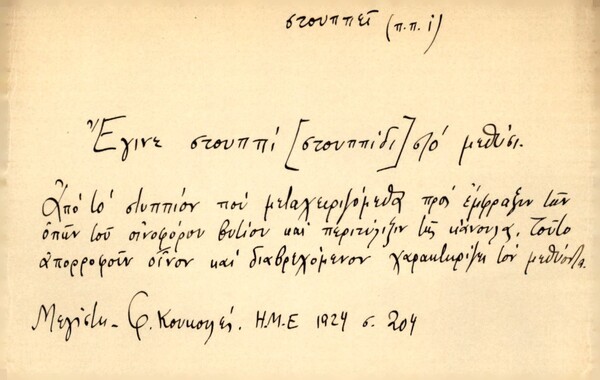 στουππεῖ (π.π. ί)
Ἔγινε στουππί [στουππίδι] στό μεθύσι.
Ἀπό τό στυππίον πού μεταχειριζόμεθα πρός ἔμφραξιν τῶν
ὀπῶν τοῦ οἰνοφόρου βυτίου καί περιτύλιξιν τῆς κάνουλα. Τοῦτο
ἀπορροφοῦν οἶνον καί διαβρεχόμενον χαρακτηρίζει τόν μεθύοντα.
Μεγίστη - Φ. Κουκουλές. Η.Μ.Ε 1924 σ. 204